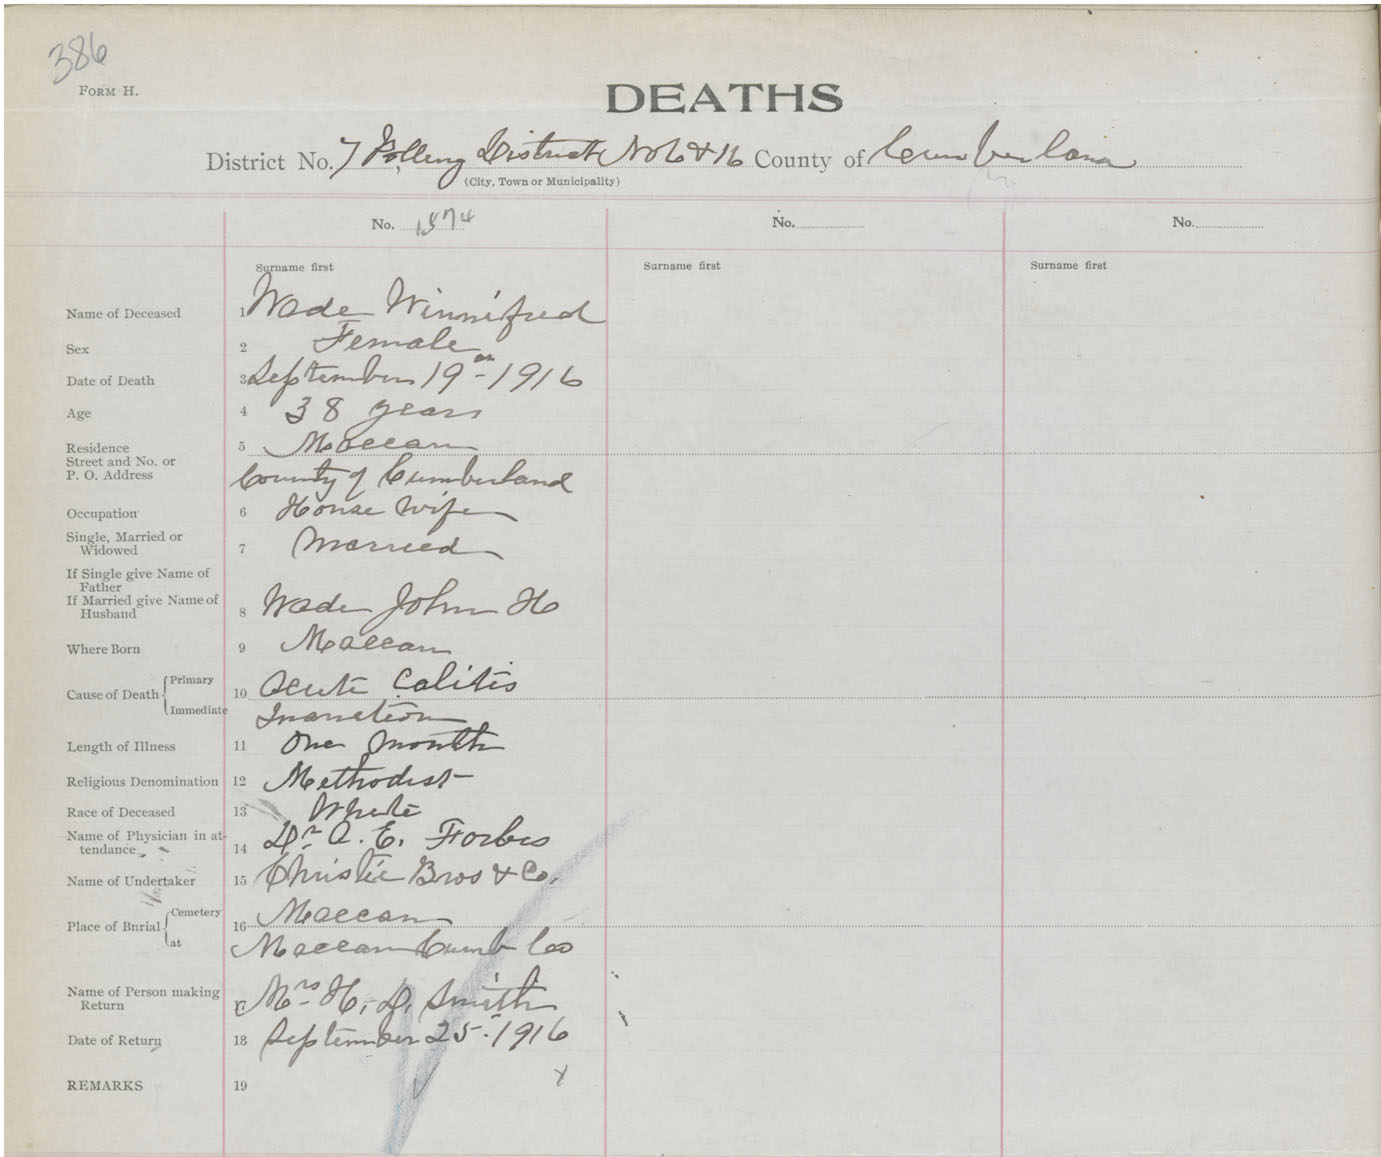 386
FORM H.
DEATHS
District No. 7 Polling District No 6 & 16 County of Cumberland
(City, Town or Municipality)
No. 1874 No. No.
Surname first Surname first Surname first
Name of Deceased 1 Wade Winnifred
Sex 2 Female
Date of Death 3 September 19 - 1916
Age 4 38 years
Residence 5 Maccan
Street and No. or
P. O. Address County of Cumberland
Occupation 6 House Wife
Single, Married or
Widowed 7 Married
If Single give Name of
Father
If Married give Name of
Husband 8 Wade John H
Where Born 9 Maccan
Cause of Death Primary 10 Acute Calitis
Immediate Inanition
Length of Illness 11 One Month
Religious Denomination 12 Methodist
Race of Deceased 13 White
Name of Physician in at-
tendance 14 Dr A. E. Forbes
Name of Undertaker 15 Christie Bros & Co.
Place of Burial Cemetery 16 Maccan
at Maccan Cumb Co
Name of Person making
Return 17 Mrs H. D. Smith
Date of Return 18 September 25 - 1916
REMARKS 19 x